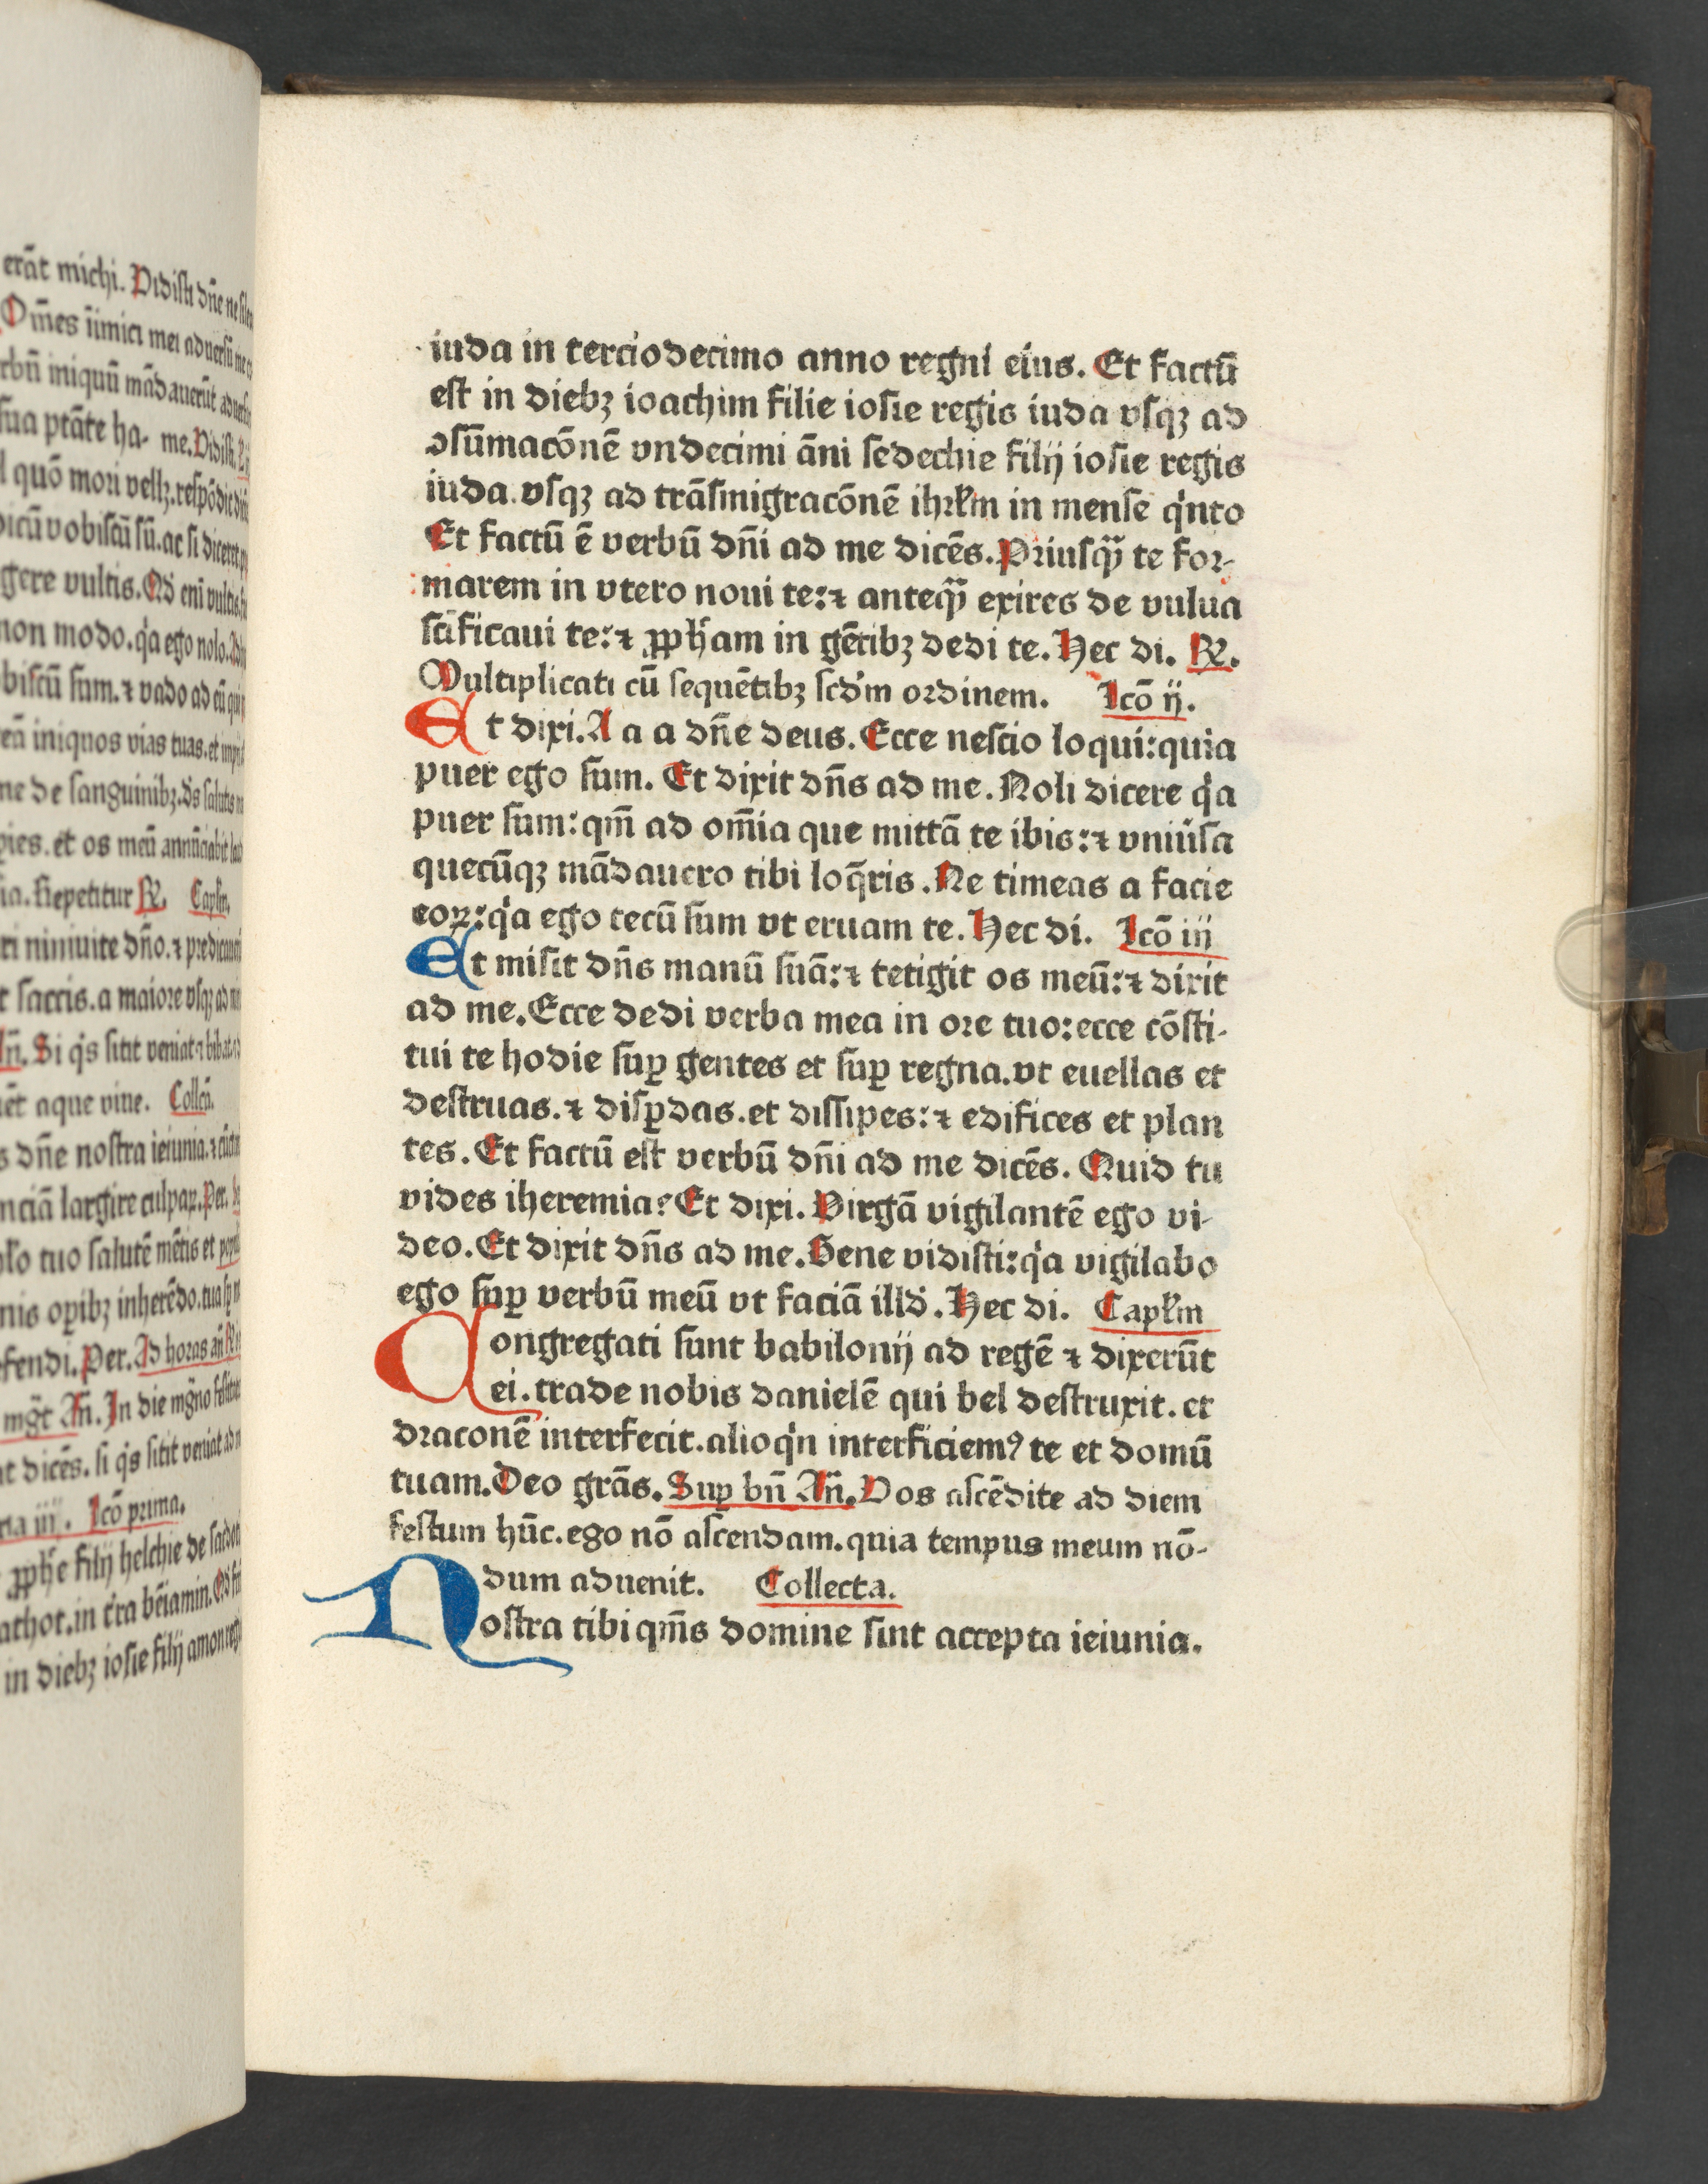 erāt michi. Vidisti dn̄e ne
Om̄es īimici mei aduersū me
rbū iniquū mādauerūt
sua ptāte ha- me. Vidisti.
quō mori vellꝫ. respōdit
vobiscū sū. ac si diceret
gere vultis. Qd eni vultis
non modo. q̇a ego nolo.
biscū sum. ⁊ vado ad eū qui
iniquos vias tuas. et
ne de sanguinibꝫ. ds salutis
pies. et os meū annūciabit
ia. Repetitur ℞. Capłm.
niniuite dn̄o. ⁊ predicauit
saccis. a maiore vsqꝫ ad
An̄. Si q̇s sitit veniat ⁊ bibat
aque viue. Collcā.
dn̄e nostra ieiunia. ⁊
nciā largire culpaꝝ. Per.
tuo salutē mētis et
nis oꝑibꝫ inherēdo. tua
fendi. Per. Ad horas an̄
mgt̄ An̄. In die mgn̄o
dicēs. si q̇s sitit veniat ad
iij. Lcō prima.
ꝓph̄e filij helchie de
athot. in tr̄a bēiamin.
in diebꝫ iosie filij amon
iuda in terciodecimo anno regni eius. Et factū
est in diebꝫ ioachim filie iosie regis iuda vsqꝫ ad
ↄsūmacōnē vndecimi āni sedechie filij iosie regis
iuda. vsqꝫ ad trāsmigracōnē ihrłm in mense q̇nto
Et factū ē verbū dn̄i ad me dicēs. Priusqꝫ̄ te for-
marem in vtero noui te: ⁊ anteqꝫ̄ exires de vulua
scīficaui te: ⁊ ꝓph̄am in gētibꝫ dedi te. Hec di. ℞.
Multiplicati cū sequētibꝫ scd'm ordinem. Lcō ij.
Et dixi. A a a dn̄e deus. Ecce nescio loqui: quia
puer ego sum. Et dixit dn̄s ad me. Noli dicere q̇a
puer sum: qm̄ ad om̄ia que mittā te ibis: ⁊ vniūsa
quecūqꝫ mādauero tibi loq̄ris. Ne timeas a facie
eoꝝ: q̇a ego tecū sum vt eruam te. Hec di. Lcō iij
Et misit dn̄s manū suā: ⁊ tetigit os meū: ⁊ dixit
ad me. Ecce dedi verba mea in ore tuo: ecce cōsti-
tui te hodie suꝑ gentes et suꝑ regna. vt euellas et
destruas. ⁊ disꝑdas. et dissipes: ⁊ edifices et plan
tes. Et factū est verbū dn̄i ad me dicēs. Quid tu
vides iheremia? Et dixi. Virgā vigilantē ego vi-
deo. Et dixit dn̄s ad me. Bene vidisti: q̇a vigilabo
ego suꝑ verbū meū vt faciā illd'. Hec di. Capłm
Congregati sunt babilonij ad regē ⁊ dixerūt
ei. trade nobis danielē qui bel destruxit. et
draconē interfecit. alioq̇n interficiemꝰ te et domū
tuam. Deo grās. Suꝑ bn̄ An̄. Vos ascēdite ad diem
festum hūc. ego nō ascendam. quia tempus meum nō-
dum aduenit. Collecta.
Nostra tibi qm̄s domine sint accepta ieiunia.